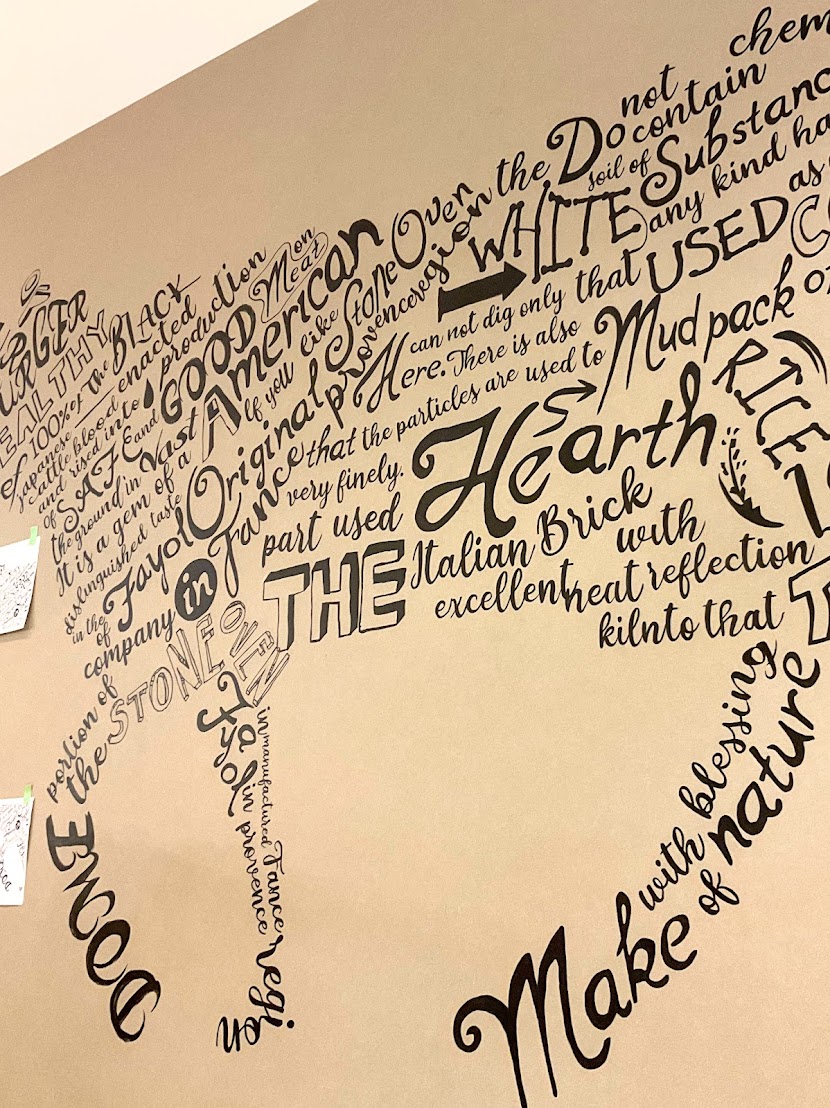 BURGER
HEALTHY
of 100% of the BLACK
Japanese
cattle blood enacted
and rised into production
of SAFE and GOOD Meat on
the ground in vast American
It is a gem of a If you like Stone Oven the Do not contain
distinguished taste
in the Fayol Original provence region
of
company in Fance that the particles are used to
very finely.
portion of
the STONE OVEN
part used Hearth
THE Italian Brick
excellent heat reflection
with
kilnto that
WHITE
soil of Substanc
any kind ha
Here can not dig only that USED as
Here. There is also
Mud pack or
RICE
BWOOD
Fayol in
manufactured Fance
provence region
Make with blessing
of nature